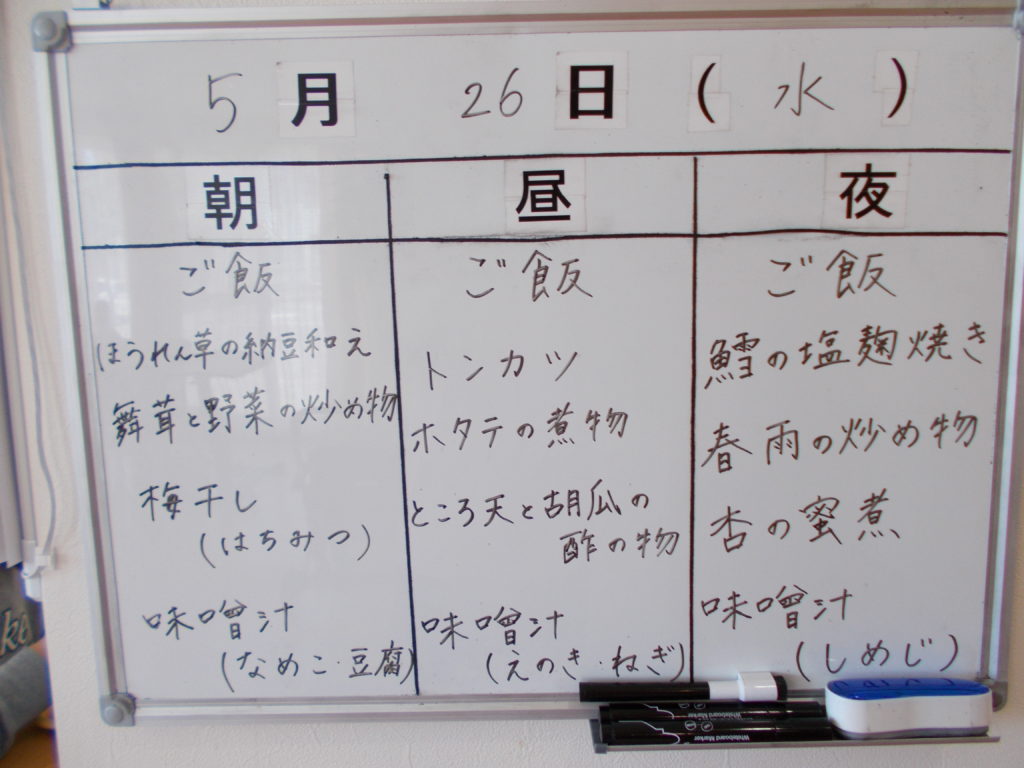 5月 26日 (水)
朝
ご飯
ほうれん草の納豆和え
舞茸と野菜の炒め物
梅干し
(はちみつ)
味噌汁
(なめこ・豆腐)
昼
ご飯
トンカツ
ホタテの煮物
ところ天と胡瓜の
酢の物
味噌汁
(えのき・ねぎ)
夜
ご飯
鱈の塩麹焼き
春雨の炒め物
杏の蜜煮
味噌汁
(しめじ)
Whiteboard Marker
Whiteboard Marker